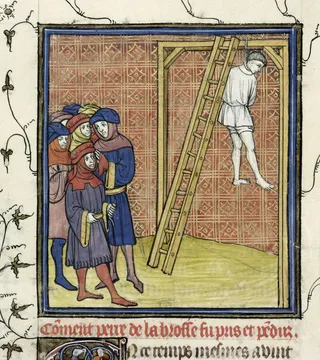 Cõment pierre de la brosse fu pris et pẽdus.
En ce temps meismes auint